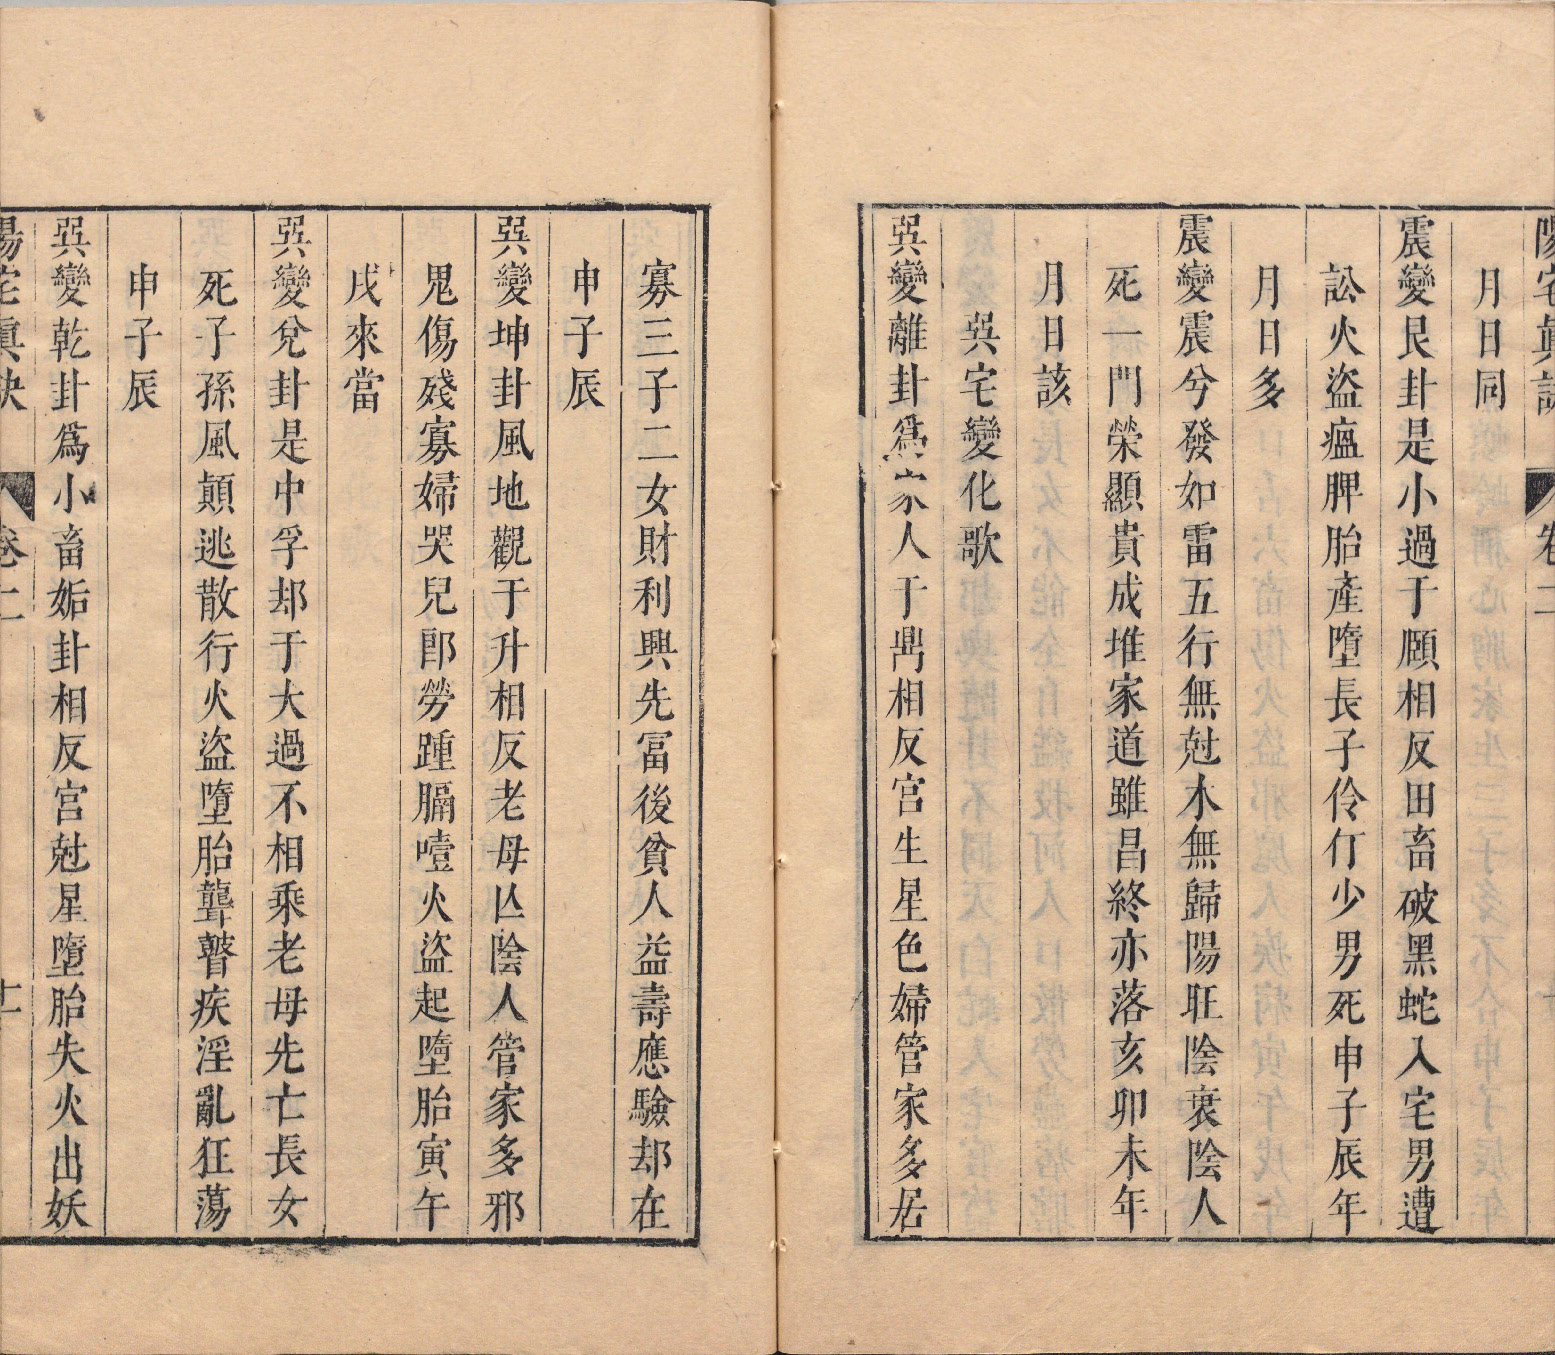 陽宅眞訣 卷二 十
月日同
震變艮卦是小過于頤相反田畜破黑蛇入宅男遭
訟火盜瘟脾胎產墮長子伶仃少男死申子辰年
月日多
震變震兮發如雷五行無尅木無歸陽旺陰衰陰人
死一門榮顯貴成堆家道雖昌終亦落亥卯未年
月日該
巽宅變化歌
巽變離卦爲家人于鼎相反宮生星色婦管家多居
寡三子二女財利興先冨後貧人益壽應驗却在
申子辰
巽變坤卦風地觀于升相反老母亾陰人管家多邪
鬼傷殘寡婦哭兒郎勞踵膈噎火盜起墮胎寅午
戌來當
巽變兌卦是中孚却于大過不相乘老母先亡長女
死子孫風顛逃散行火盜墮胎聾瞽疾淫亂狂蕩
申子辰
巽變乾卦爲小畜姤卦相反宮尅星墮胎失火出妖
陽宅眞訣 卷二 十一